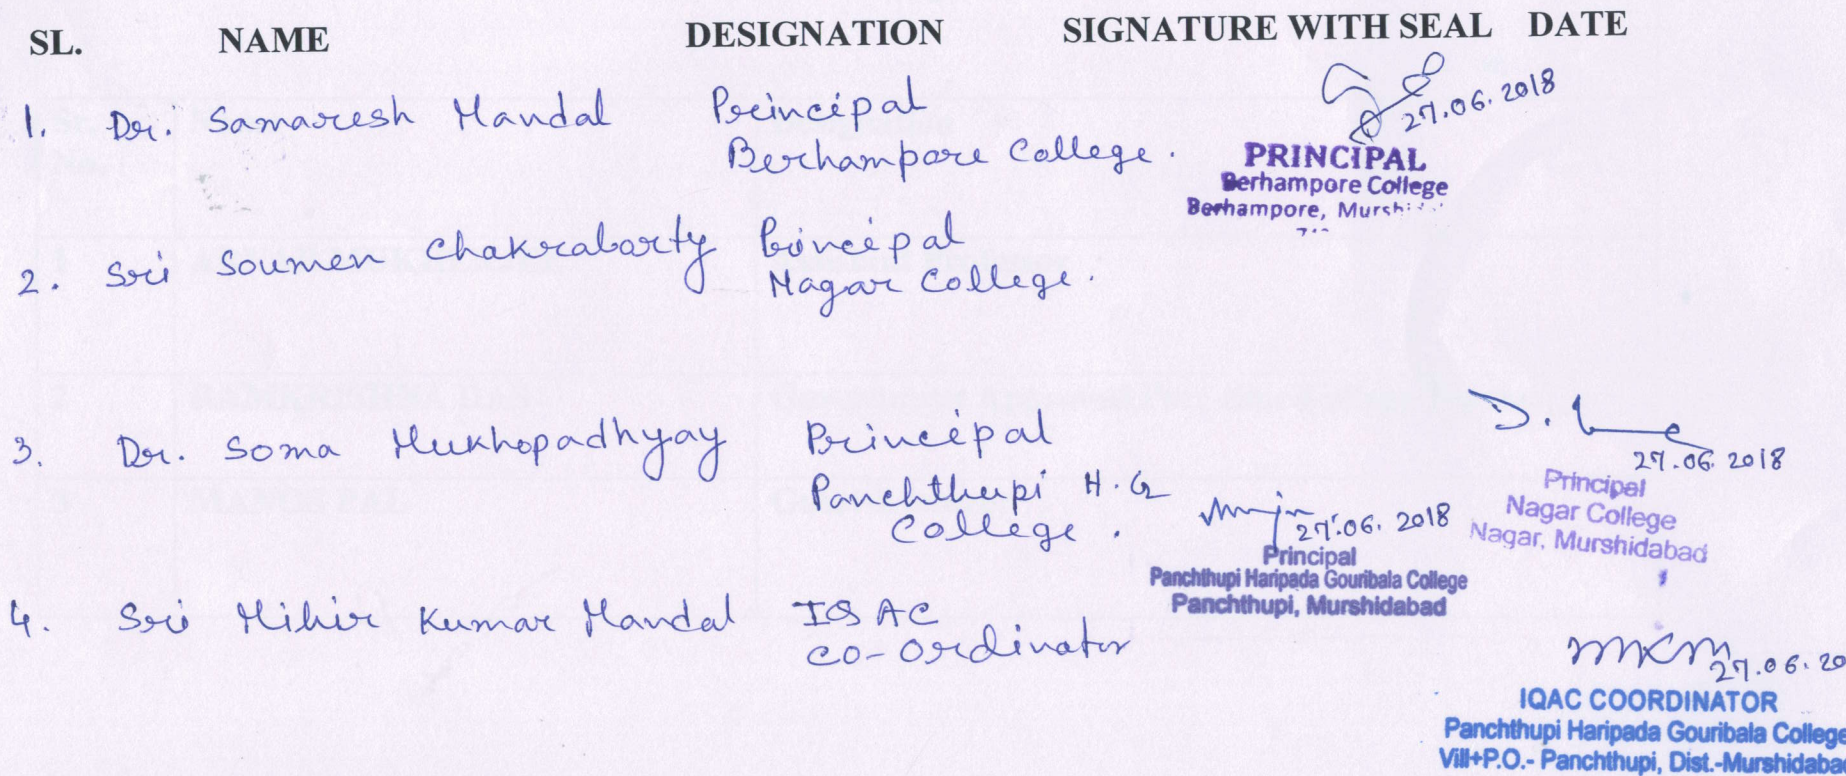 SL. NAME DESIGNATION SIGNATURE WITH SEAL DATE
1. Dr. Samaresh Mandal Principal
Berhampore College.
27.06.2018
PRINCIPAL
Berhampore College
Berhampore,
2. Sri Soumen Chakrabarty Principal
Nagar College.
3. Dr. Soma Mukhopadhyay Principal
Panchthupi H.G
College.
27.06.2018
Principal
Panchthupi Haripada Gouribala College
Panchthupi, Murshidabad
27.06.2018
Principal
Nagar College
Nagar, Murshidabad
4. Sri Mihir Kumar Mandal IQAC
co-ordinator
MKM 27.06.20
IQAC COORDINATOR
Panchthupi Haripada Gouribala College
Vill+P.O.- Panchthupi, Dist.-Murshidabad